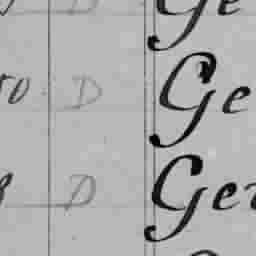 D Ge
50 D Ge
D Ge